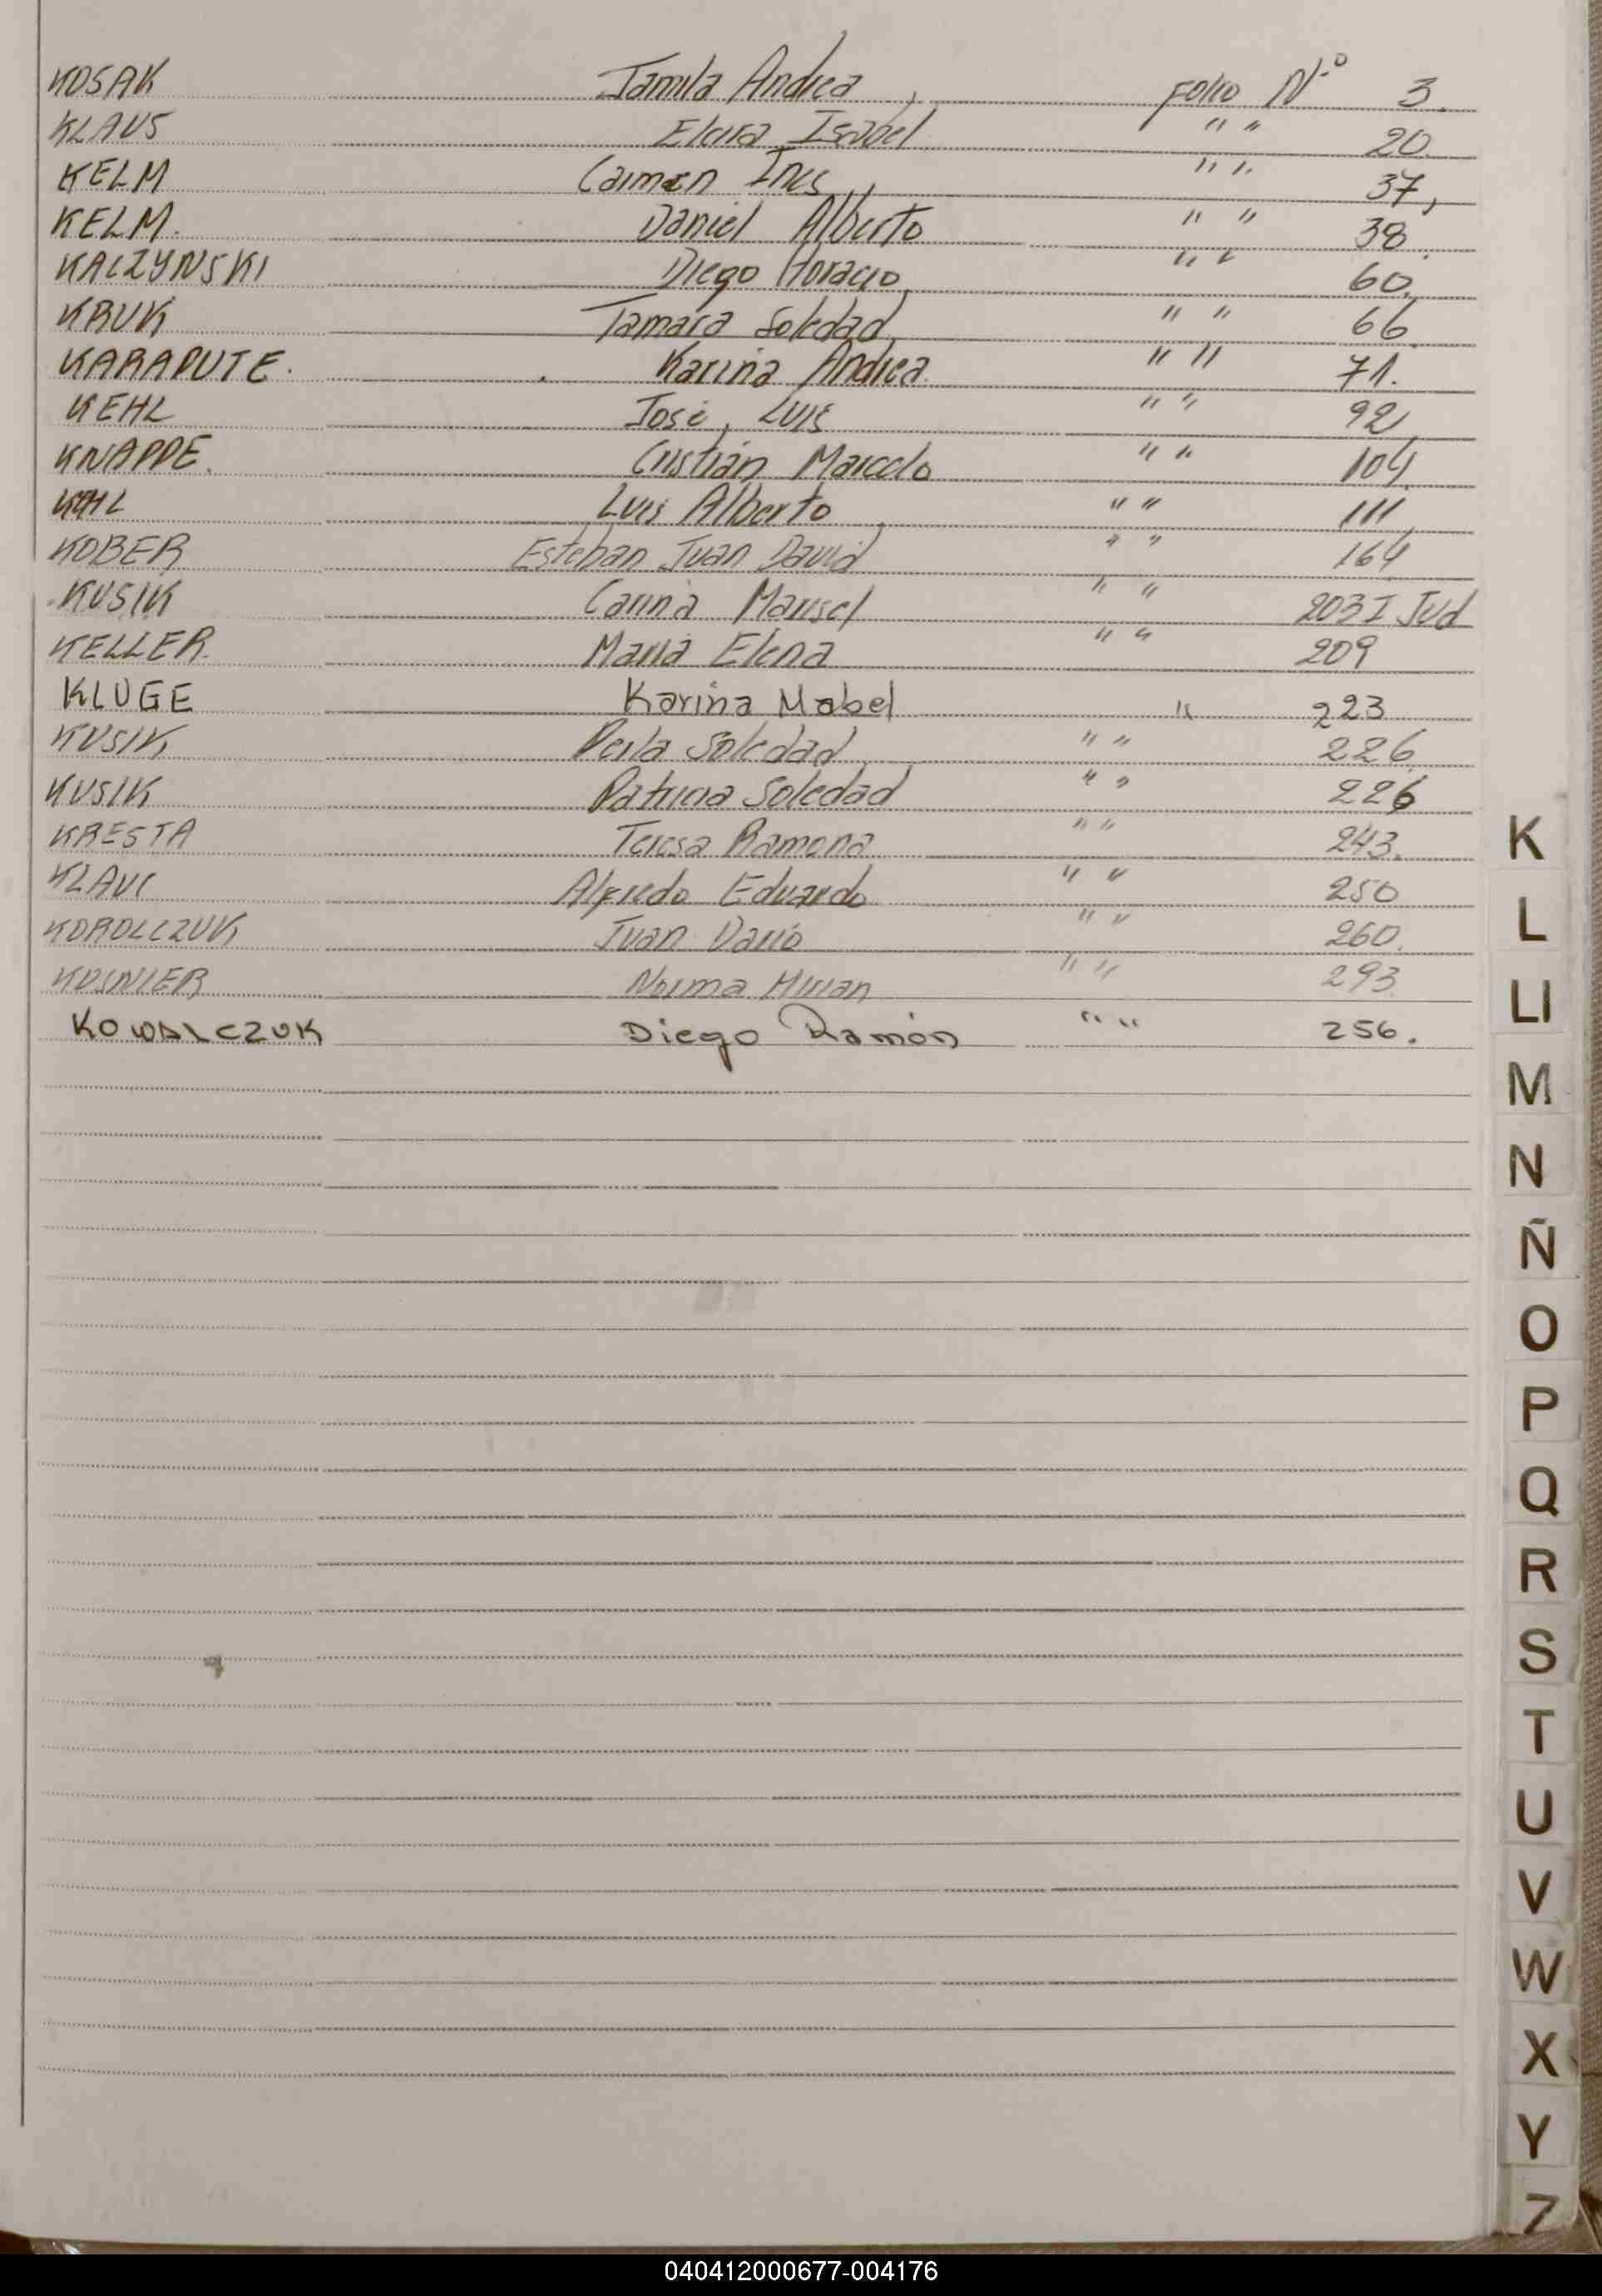 KOSAK Jamila Andrea, Folio N.º 3.
KLAUS Elvira Isabel " " 20.
KELM Carmen Ines, " " 37,
KELM. Daniel Alberto " " 38.
KACZYNSKI Diego Horacio " " 60.
KRUK Tamara Soledad " " 66.
KARAPUTE. Karina Andrea. " " 71.
KEHL José, Luis " " 92
KNAPPE. Cristián Marcelo " " 104
KEHL Luis Alberto " " 111
KOBER Esteban Juan David " " 164
KUSIK Carina Marisel " " 203 I Jud
KELLER. María Elena " " 209
KLUGE Karina Mabel " 223
KUSIK Perla Soledad " " 226.
KUSIK Patricia Soledad " " 226
KRESTA Teresa Ramona " " 243.
Alfredo Eduardo " " 250
KOROLCZUK Juan Darío " " 260.
KOSNIER Norma Mirian " " 293.
KOWALCZUK Diego Ramón " " 256.
K
L
Ll
M
N
Ñ
O
P
Q
R
S
T
U
V
W
X
Y
Z
040412000677-004176